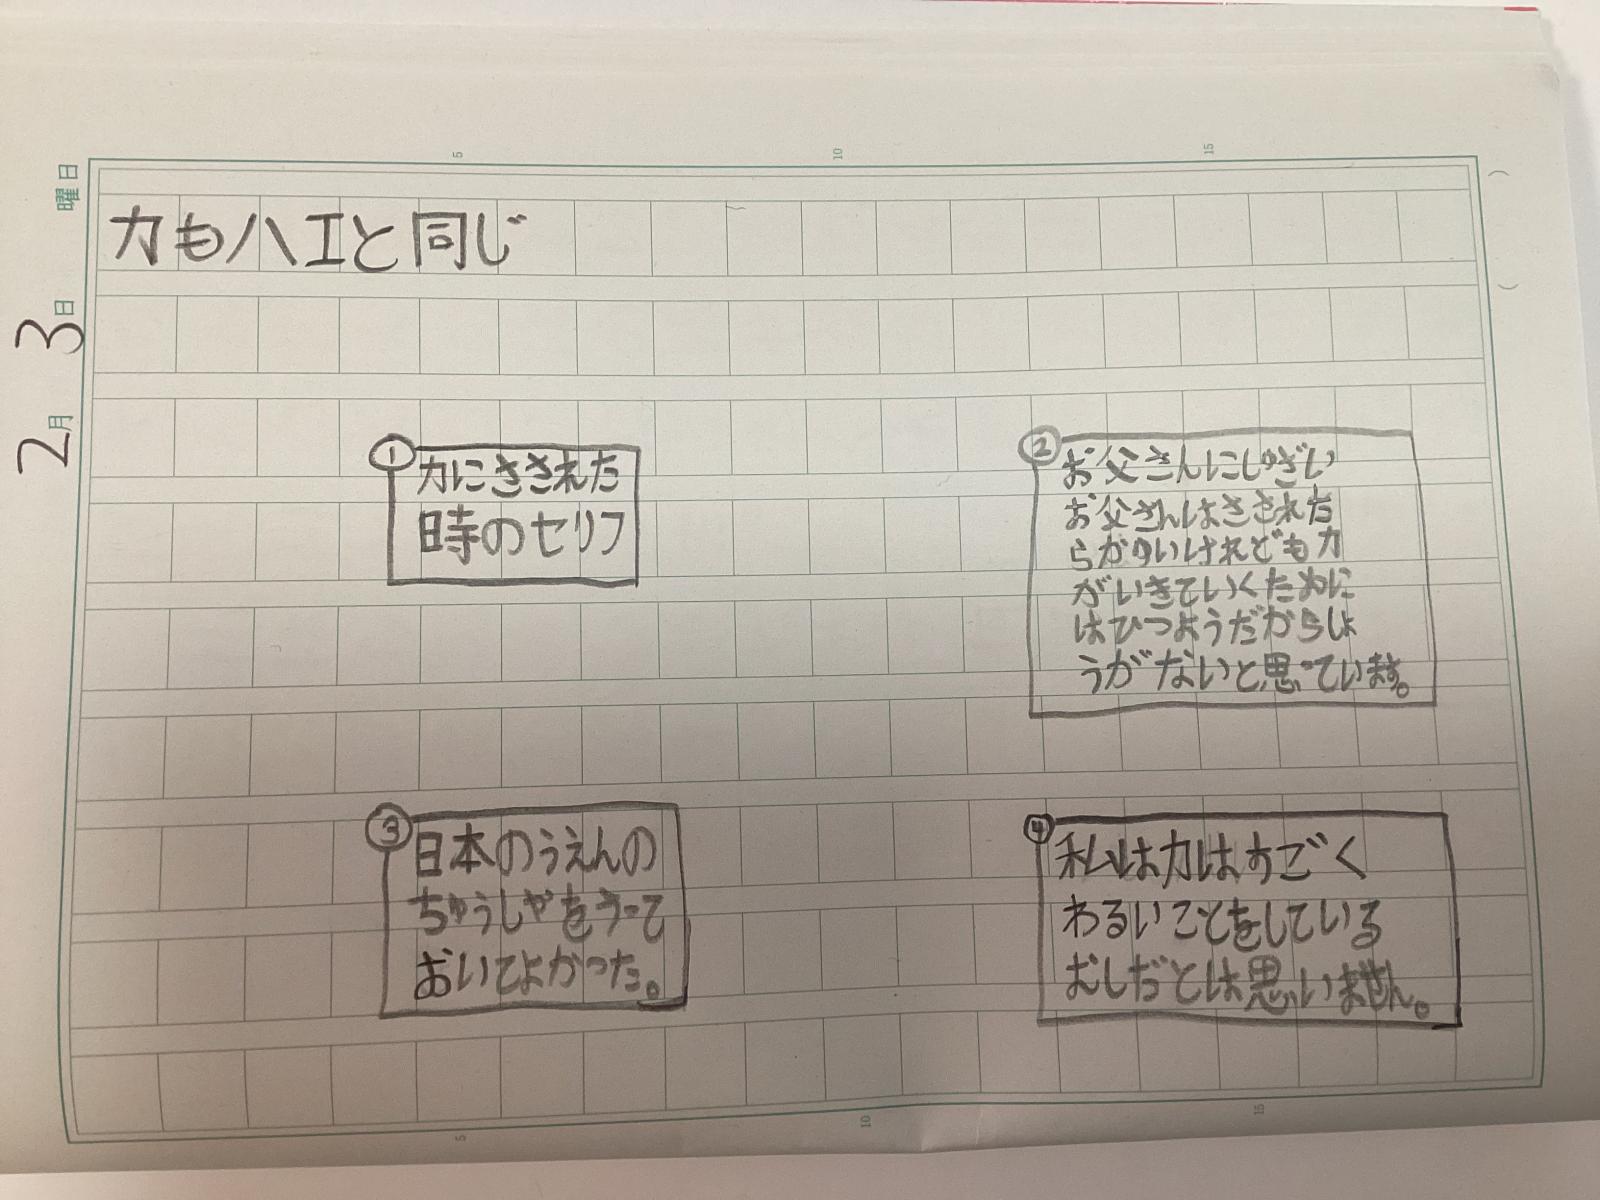 カもハエと同じ
2月3日 曜日
①
カにさされた
時のセリフ
②
お父さんにしゅざい
お父さんはさされた
らがゆいけれどもカ
がいきていくために
はひつようだからしょ
うがないと思っています。
③
日本のうえんの
ちゅうしゃをうって
おいてよかった。
④
私はカはすごく
わるいことをしている
むしだとは思いません。
5
10
15
5
10
15